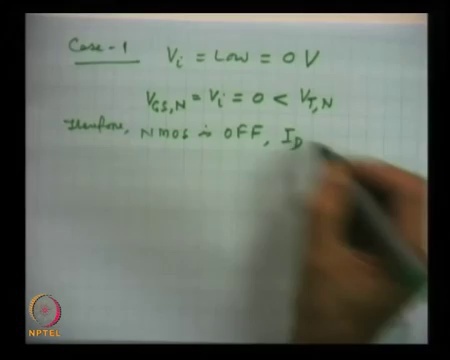 Case-1 Vi = Low = 0 V
VGS,N = Vi = 0 < VT,N
Therefore, NMOS is OFF, ID
NPTEL